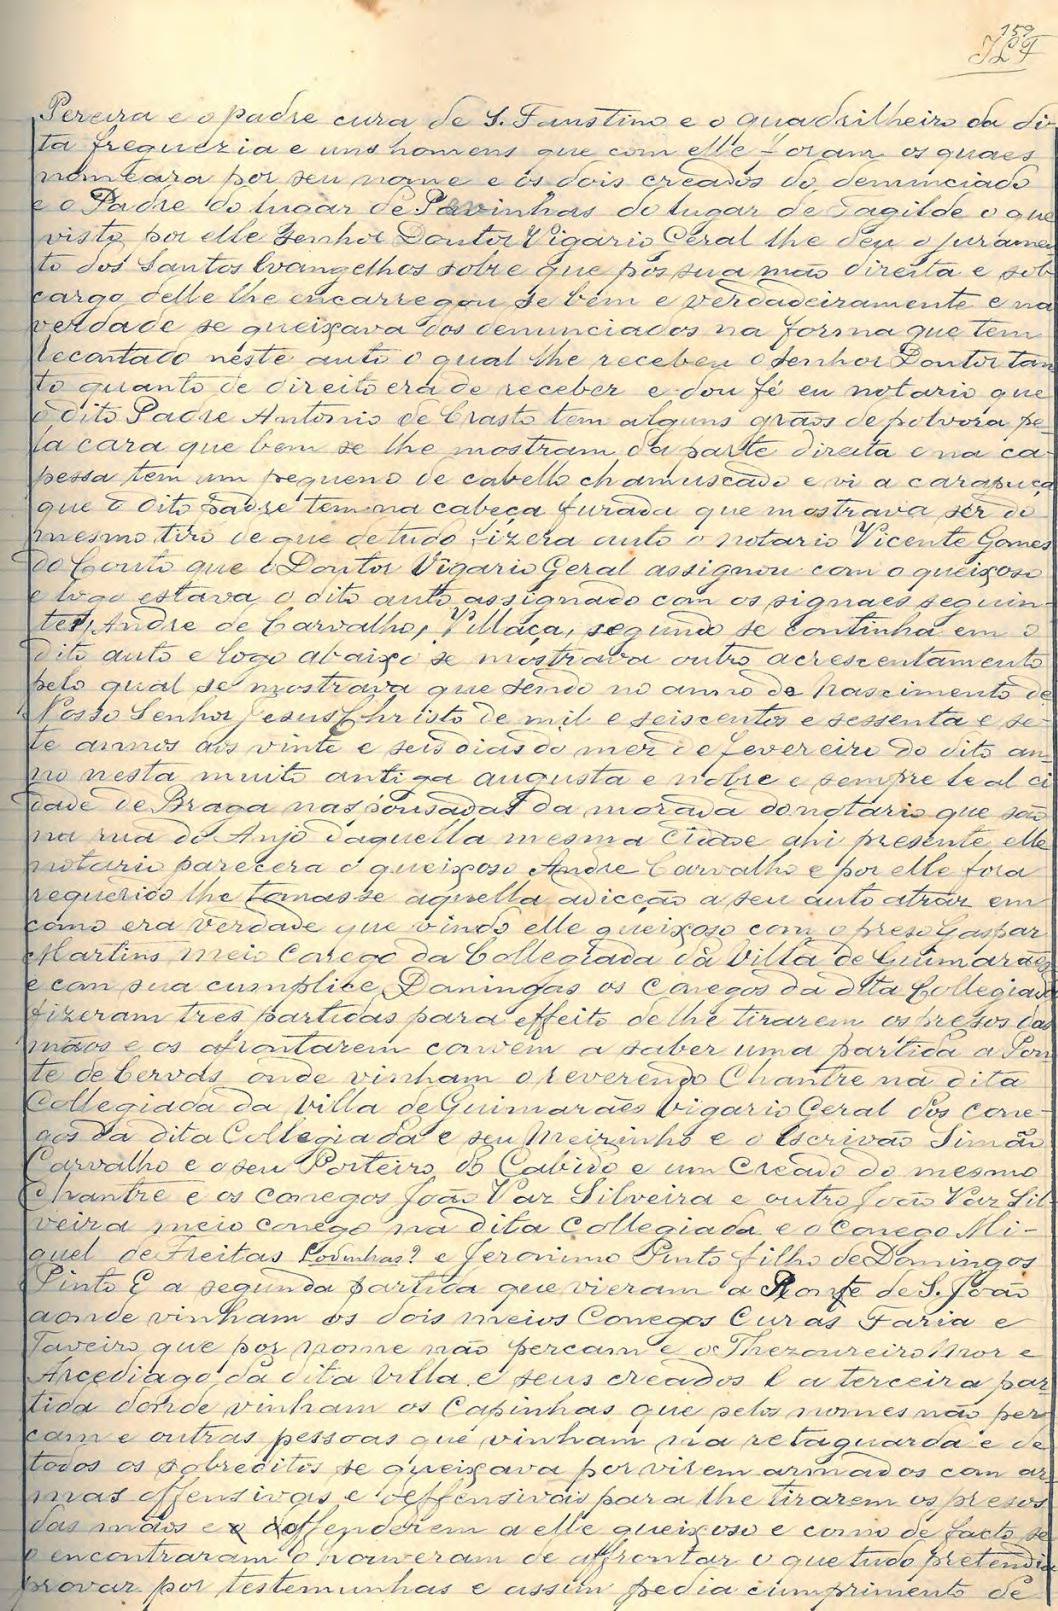 159
Pereira e o padre cura de S. Faustino e o quadrilheiro da di-
ta freguezia e uns homens que com elle foram os quaes
nomeara por seu nome e os dois creados do denunciado
e o Padre do lugar de Pavinhas do lugar de Tagilde o que
visto por elle Senhor Doutor Vigario Geral lhe deu o juramen
to dos Santos Evangelhos sobre que pôs sua mão direita e sob
cargo delle lhe encarregou se bem e verdadeiramente e na
verdade se queixava dos denunciados na forma que tem
recontado neste auto o qual lhe recebeu o Senhor Doutor tan
to quanto de direito era de receber e dou fé eu notario que
o dito Padre Antonio de Crasto tem alguns grãos de polvora pe-
la cara que bem se lhe mostram da parte direita e na ca-
pessa tem um pequeno de cabello chamuscado e vi a carapuça
que o dito Padre tem na cabeça furada que mostrava ser do
mesmo tiro de que de tudo fizera auto o notario Vicente Gomes
do Couto que o Doutor Vigario Geral assignou com o queixoso
e logo estava o dito auto assignado com os signaes seguin-
tes, André de Carvalho, Villaça, segundo se continha em o
dito auto e logo abaixo se mostrava outro acrescentamento
pelo qual se mostrava que sendo no anno de Nascimento de
Nosso Senhor Jesus Christo de mil e seiscentos e sessenta e se-
te annos aos vinte e seis dias do mez de fevereiro do dito an-
no nesta muito antiga augusta e nobre e sempre leal ci
dade de Braga nas pousadas da morada do notario que são
na rua do Anjo daquella mesma Cidade ahi presente elle
notario parecera o queixoso Andre Carvalho e por elle fora
requerido lhe tomasse aquella adicção a seu auto atraz em
como era verdade que vindo elle queixoso com o preso Gaspar
Martins meio Conego da Collegiada da Villa de Guimarães
e com sua cumplice Domingas os Conegos da dita Collegiada
fizeram tres partidas para effeito de lhe tirarem os presos das
mãos e os afrontarem convem a saber uma partida a Pon-
te de Cervas onde vinham o reverendo Chantre na dita
Collegiada da Villa de Guimarães Vigario Geral dos cone-
gos da dita Collegiada e seu Meirinho e o Escrivão Simão
Carvalho e o seu Porteiro do Cabido e um Creado do mesmo
Chantre e os conegos João Vaz Silveira e outro João Vaz Sil-
veira meio conego na dita Collegiada e o Conego Mi-
guel de Freitas e Jeronimo Pinto filho de Domingos
Pinto E a segunda partida que vieram a Ponte de S. João
aonde vinham os dois meios Conegos Curas Faria e
Taveiro que por nome não percam e o Thezoureiro Mor e
Arcediago da dita Villa e seus creados E a terceira par
tida donde vinham os Capinhas que pelos nomes não per
cam e outras pessoas que vinham na retaguarda e de
todos os sobreditos se queixava por virem armados com ar
mas offensivas e deffensivas para lhe tirarem os presos
das mãos e offenderem a elle queixoso e como de facto se
o encontraram o houveram de affrontar o que tudo pretendia
provar por testemunhas e assim pedia cumprimento de